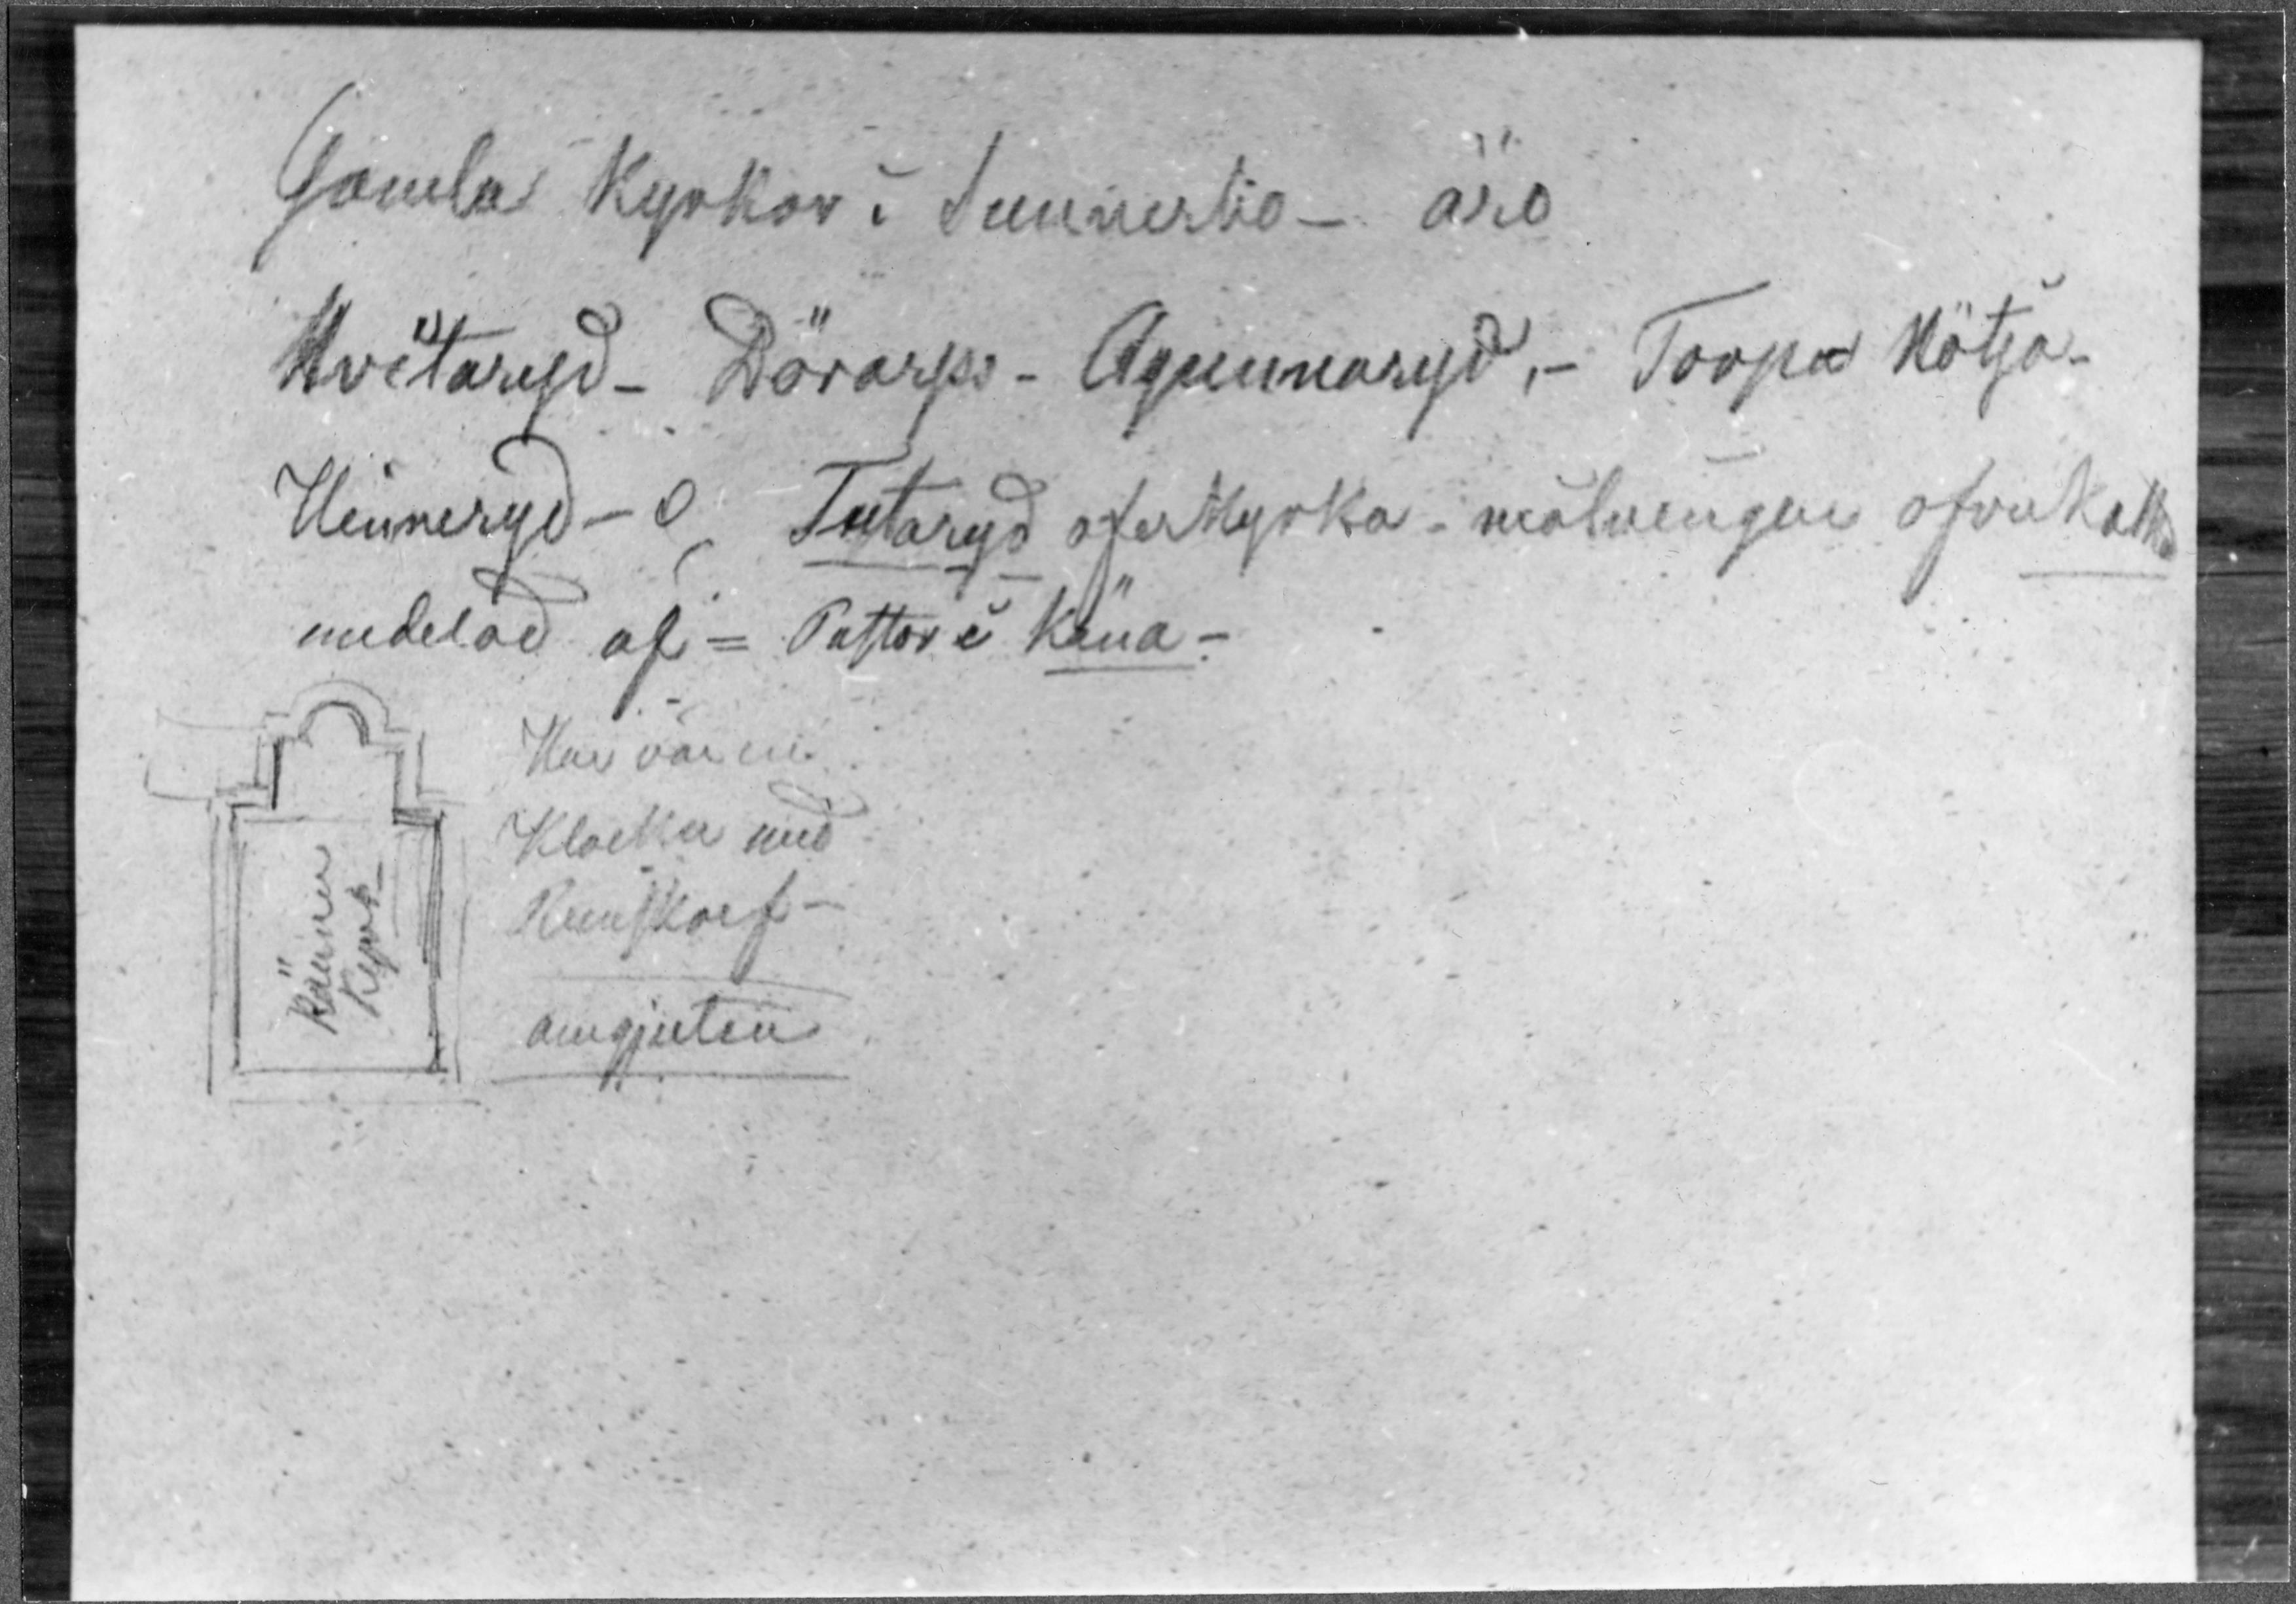 Gamla Kyrkor i Sunnerbo - äro
Hvitaryd - Dörarps - Agunnaryd, - Torpa Nötja -
Hinneryd - o Tutaryd Kyrka - målningen
medelad af = Pastor i Kåna -
Här var en
Klocka med
Runskrif -
omgjuten
Känna
Kyrk -